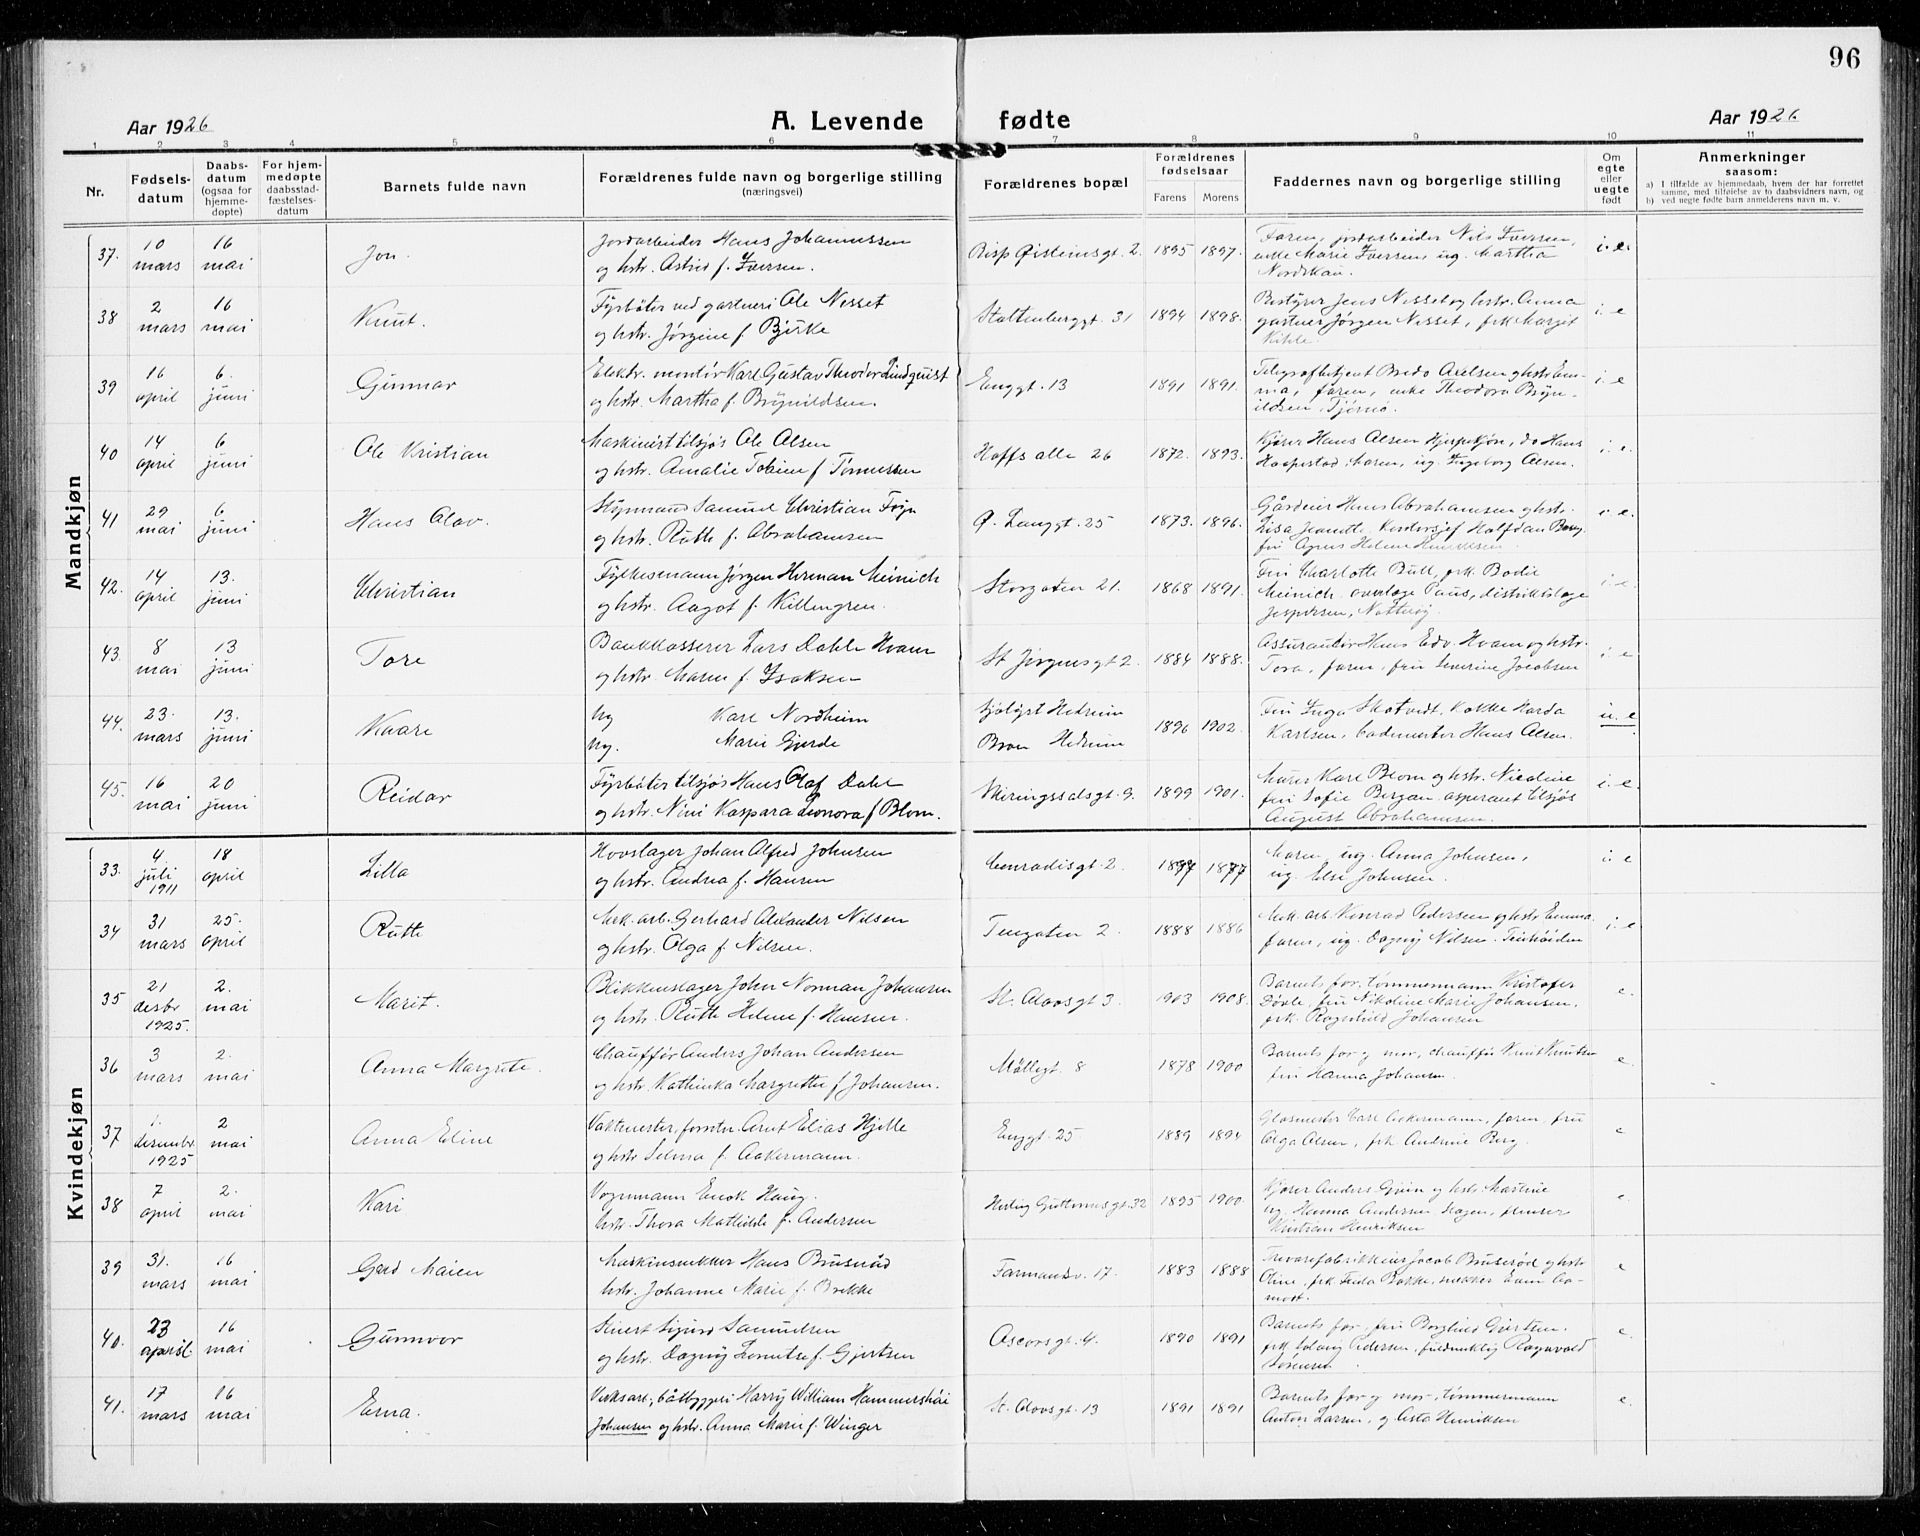 96
Aar 1926
A. Levende fødte
Aar 1926
1 2 3 4 5 6 7 8 9 10 11
Nr.
Fødsels-
datum
Daabs-
datum
(ogsaa for
hjemme-
døpte)
For hjem-
medøpte
daabsstad-
fæstelses-
datum
Barnets fulde navn
Forældrenes fulde navn og borgerlige stilling
(næringsvei)
Forældrenes bopæl
Forældrenes
fødselsaar
Farens Morens
Faddernes navn og borgerlige stilling
Om
egte
eller
uegte
født
Anmerkninger
saasom:
a) I tilfælde av hjemmedaab, hvem der har forrettet
samme, med tilføielse av to daabsvidners navn, og
b) ved uegte fødte barn anmelderens navn m. v.
Mandkjøn
37. 10 mars 16 mai Jon.
Jordarbeider Hans Johannessen
og hstr. Astrid f. Iversen.
Bisp Øisteinsgt. 2. 1895 1897.
Faren, jordarbeider Nils Iversen,
enke Marie Iversen, ug. Martha
Nordskau.
i. e.
38 2 mars 16 mai Knut.
Fyrbøter ved gartneri Ole Nesset
og hstr. Jørgine f. Bjerke
Stoltenberggt. 31 1894 1898.
Bestyrer Jens Nesset og hstr. Anna
gartner Jørgen Nesset, frk Margit
i. e
39 16 april 6. juni Gunnar
Elektr. montør Karl Gustav Theodor Lindquist
og hstr. Martha f. Brynildsen.
Enggt. 13 1891 1891.
Telegrafbetjent Bredo Axelsen og hstr Em-
ma, faren, enke Theodora Bryn-
ildsen, Tjømø.
i. e
40 14 april 6 juni Ole Kristian
Maskinist tilsjøs Ole Olsen
og hstr. Amalie Tobine f Tønnessen
Hoffs alle 26 1872. 1893.
Kjører Hans Olsen Hjerpekjøn, do Hans
Haapestad, moren, ug. Ingeborg Olsen.
i. e.
41 29 mai 6 juni Hans Olav.
Styrmand Samuel Christian Føyn
og hstr. Ruth f. Abrahamsen
Ø. Langgt. 25 1873. 1896.
Gårdeier Hans Abrahamsen og hstr.
Lisa Jeanette, Kontorsjef Halfdan Berg,
fru Agnes Helene Henriksen
i. e.
42. 14 april 13. juni Christian
Fylkesmann Jørgen Herman Meinich
og hstr. Aagot f. Killengren.
Storgaten 21. 1868 1891.
Fru Charlotte Bull, frk. Bodil
Meinich, overlæge Paus, distriktslæge
Jespersen, Nøtterøy
i. e
43. 8 mai 13 juni Tore
Bankkasserer Lars Dahle Hvam
og hstr Maren f. Isaksen
St Jørgensgt 2. 1884 1888.
Assurandør Hans Edv. Hvam og hstr.
Tora, faren, fru Severine Jacobsen
i. e
44. 23. mars 13. juni Kaare
Ug Karl Nordheim
Ug. Marie Gjerde
Sjølyst Hedrum
Broen Hedrum
1896 1902.
Fru Inga Skotvedt, Kokke Harda
Karlsen, bademester Hans Olsen.
u. e
45. 16 mai 20 juni Reidar
Fyrbøter tilsjøs Hans Olaf Dahl
og hstr. Nini Kaspara Leonora f Blom.
Meringsdalsgt. 9. 1899 1901.
Murer Karl Blom og hstr. Nicoline
fru Sofie Bergan, aspirant tilsjøs
August Abrahamsen.
i. e
Kvindekjøn
33. 4. juli 1911 18 april Lilla
Hovslager Johan Alfred Johnsen
og hstr. Andrea f. Hansen
Conradisgt. 2. 1877
Moren, ug. Anna Johnsen,
ug. Elsi Johnsen.
i. e
34 31 mars 25. april Ruth
Verk. arb. Gerhard Alexander Nilsen
og hstr. Olga f Nilsen.
Tengaten 2 1888 1886
Verk. arb. Konrad Pedersen og hstr Emma,
faren, ug. Dagny Nilsen. Teiehøiden
i. e
35 21 desbr 1925. 2. mai Marit.
Blikkenslager John Norman Johansen
og hstr. Ruth Helene f. Hansen.
St. Olavsgt 3. 1903 1908.
Barnets far, tømmermann Kristofer
Dovle, fru Nikoline Marie Johansen,
frk. Ragnhild Johansen
e.
36 3 mars 2. mai Anna Margrete.
Chauffør Anders Johan Andersen
og hstr. Kathinka Margrethe f Johansen.
Møllegt. 8 1878 1900
Barnets far og mor, chauffør Knut Knutsen
fru Hanna Johansen.
e
37 1. desembr 1925 2 mai Anna Eline
Vaktmester, forstr. Arnt Elias Hjelle
og hstr Selma f. Aakermann.
Enggt. 25. 1889 1894
Glasmester Carl Aakermann, faren, fru
Olga Olsen, frk Andrine Berg.
e
38 7 april 2. mai Kari
Vognmann Enok Haug.
hstr. Thora Mathilde f. Andersen
Hertug Guttormsgt. 32 1895 1900.
Kjører Anders Gjein og hstr. Martine
ug. Hanna Andersen,
Kristian Henriksen
e.
39 31. mars 16 mai Gerd Maien
Maskinsnekker Hans Brusrød
hstr. Johanne Marie f. Brekke
Farmandsv. 17. 1883 1888
Trevarefabrikkeier Jacob Bruserød og hstr
Oline, frk. Frida Bakke, snekker Even Aa-
modt.
e
40. 23 april 16 mai Gunnvor
Stuert Sigurd Samuelsen
og hstr. Dagny f. Gjertsen
Oscarsgt. 4. 1890 1891
Barnets far, fru Borghild Gjertsen,
frk. Solveig Pedersen, fuldmektig Ragnvald
Sørensen
e.
41. 17 mars 16 mai Erna.
Verksarb., båtbyggeri Harry William Hammershøi
Johansen og hstr. Anna Marie f. Winger
St. Olavsgt. 13 1891 1891
Barnets far og mor, tømmermann
Anton Larsen, og Asta Henriksen
e.